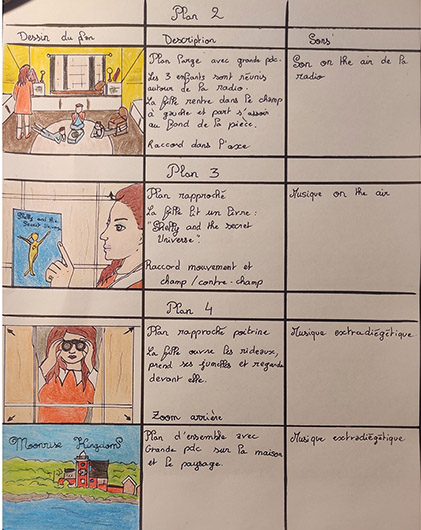 Plan 2
Dessin du plan
Description
Sons
Plan large avec grande pdc.
Les 3 enfants sont réunis
autour de la radio.
La fille rentre dans le champ
à gauche et part s'assoir
au fond de la pièce.
Raccord dans l'axe
Son on the air de la
radio
Plan 3
Shelly and the
Secret Universe
Plan rapproché
La fille lit un livre :
"Shelly and the secret
Universe".
Raccord mouvement et
champ / contre-champ
Musique on the air
Plan 4
Plan rapproché poitrine
La fille ouvre les rideaux,
prend ses jumelles et regarde
devant elle.
Zoom arrière
Musique extradiégétique
Moonrise Kingdom
Plan d'ensemble avec
Grande pdc sur la maison
et le paysage.
Musique extradiégétique